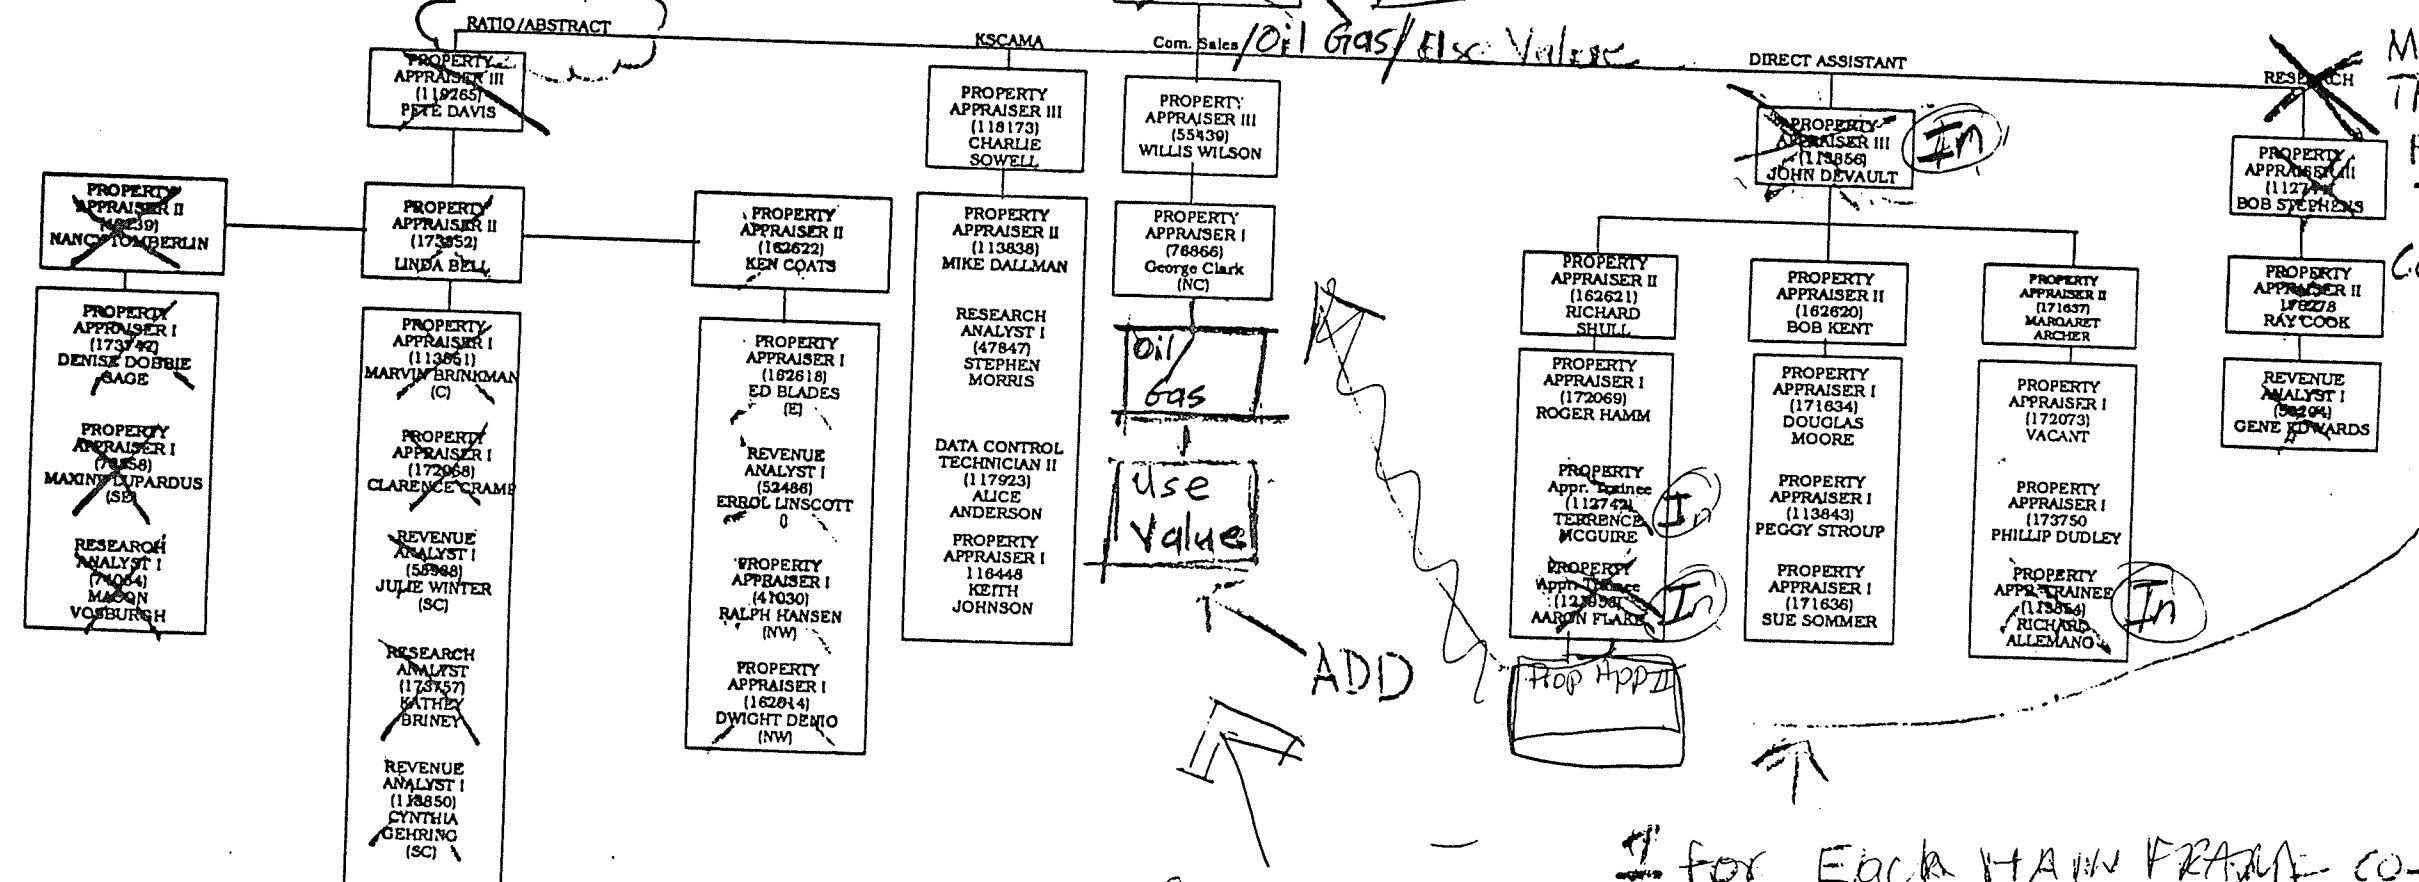 RATIO/ABSTRACT
PROPERTY
APPRAISER III
(119265)
PETE DAVIS
PROPERTY
APPRAISER II
NANCY TOMBERLIN
PROPERTY
APPRAISER I
DENISE DOBBIE
GAGE
PROPERTY
APPRAISER I
MAXINE LUPARDUS
(SE)
RESEARCH
ANALYST I
MASON
VOSBURGH
PROPERTY
APPRAISER II
(173852)
LINDA BELL
PROPERTY
APPRAISER I
(113851)
MARVIN BRINKMAN
(C)
PROPERTY
APPRAISER I
(172068)
CLARENCE CRAMP
REVENUE
ANALYST I
JULIE WINTER
(SC)
RESEARCH
ANALYST
(173757)
KATHEY
BRINEY
REVENUE
ANALYST I
(113850)
CYNTHIA
GEHRING
(SC)
PROPERTY
APPRAISER II
(162622)
KEN COATS
PROPERTY
APPRAISER I
(162618)
ED BLADES
(E)
REVENUE
ANALYST I
(52486)
ERROL LINSCOTT
()
PROPERTY
APPRAISER I
(41030)
RALPH HANSEN
(NW)
PROPERTY
APPRAISER I
(162614)
DWIGHT DENIO
(NW)
KSCAMA
PROPERTY
APPRAISER III
(118173)
CHARLIE
SOWELL
PROPERTY
APPRAISER II
(113838)
MIKE DALLMAN
RESEARCH
ANALYST I
(47847)
STEPHEN
MORRIS
DATA CONTROL
TECHNICIAN II
(117923)
ALICE
ANDERSON
PROPERTY
APPRAISER I
116448
KEITH
JOHNSON
Com. Sales/Oil Gas/Use Value
PROPERTY
APPRAISER III
(55439)
WILLIS WILSON
PROPERTY
APPRAISER I
(76866)
George Clark
(NC)
Oil
Gas
Use
Value
ADD
DIRECT ASSISTANT
PROPERTY
APPRAISER III
(113856)
JOHN DEVAULT
In
PROPERTY
APPRAISER II
(162621)
RICHARD
SHULL
PROPERTY
APPRAISER I
(172069)
ROGER HAMM
PROPERTY
Appr. Trainee
(112742)
TERRENCE
MCGUIRE
In
PROPERTY
Appr. Trainee
AARON FLAKE
In
Prop App II
PROPERTY
APPRAISER II
(162620)
BOB KENT
PROPERTY
APPRAISER I
(171634)
DOUGLAS
MOORE
PROPERTY
APPRAISER I
(113843)
PEGGY STROUP
PROPERTY
APPRAISER I
(171636)
SUE SOMMER
PROPERTY
APPRAISER II
(171637)
MARGARET
ARCHER
PROPERTY
APPRAISER I
(172073)
VACANT
PROPERTY
APPRAISER I
(173750
PHILLIP DUDLEY
PROPERTY
APPR. TRAINEE
(113854)
RICHARD
ALLEMANG
In
RESEARCH
PROPERTY
APPRAISER III
BOB STEPHENS
PROPERTY
APPRAISER II
RAY COOK
REVENUE
ANALYST I
GENE EDWARDS
for Each MAIN FRAME CO-